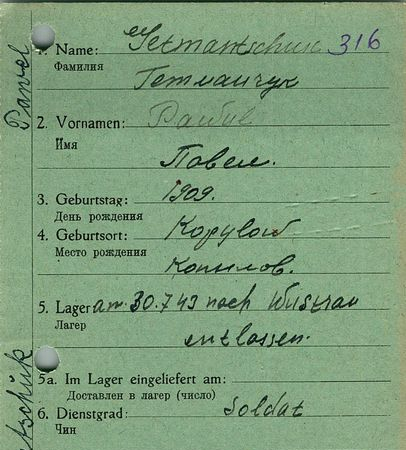 1. Name: Getmantschuk 316
Фамилия
Гетманчук
2. Vornamen: Pawel
Имя
Павел.
3. Geburtstag: 1909.
День рождения
4. Geburtsort: Kopylow
Место рождения
Копылов.
5. Lager am 30.7.43 nach Wustrau
Лагер
entlassen.
5a. Im Lager eingeliefert am:
Доставлен в лагер (число)
6. Dienstgrad: Soldat
Чин
Pawel